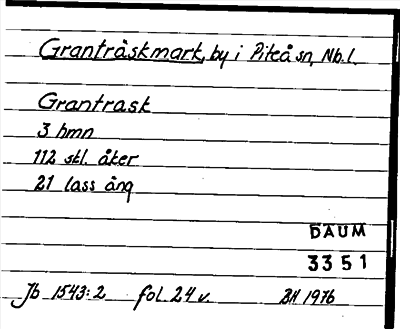 Granträskmark, by i Piteå sn, Nb.l.
Grantrask
3 hmn
112 skl. åker
21 lass äng
DAUM
3351
Jb 1543:2 fol. 24 v. BH 1976